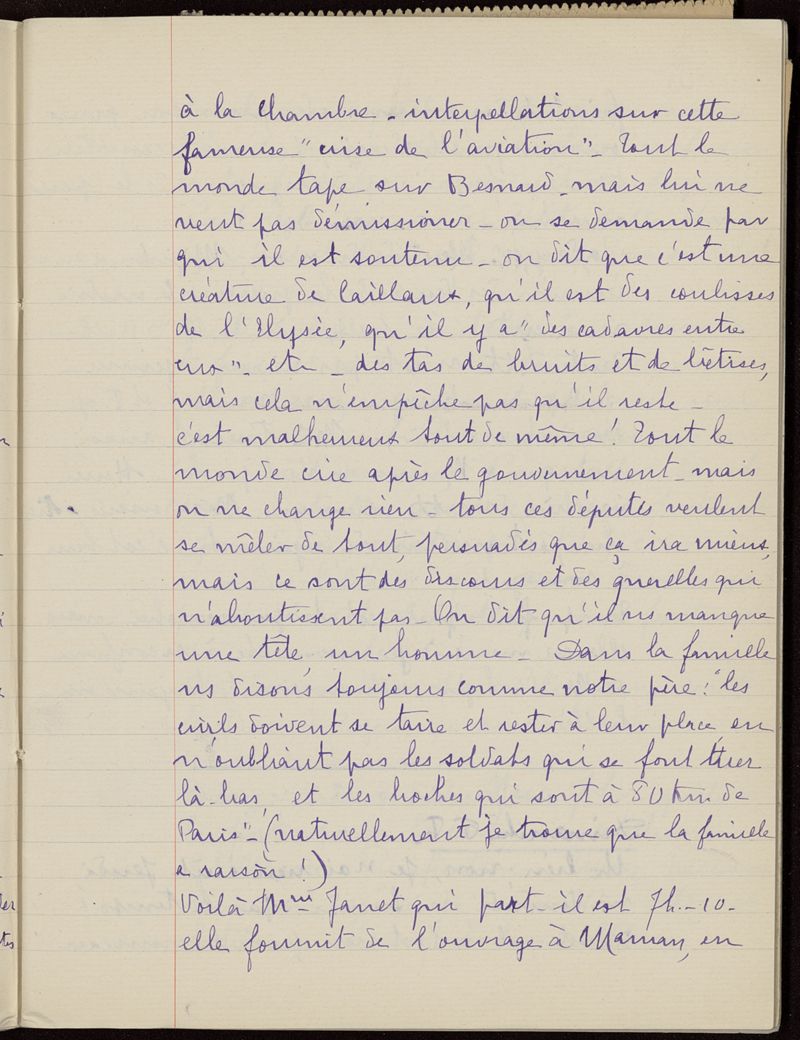 à la Chambre - interpellations sur cette
fameuse "crise de l'aviation" - Tout le
monde tape sur Besnard - mais lui ne
veut pas démissioner - on se demande par
qui il est soutenu - on dit que c'est une
créature de Caillaux, qu'il est des coulisses
de l'Elysée, qu'il y a "des cadavres entre
eux" - etc - des tas de bruits et de bêtises,
mais cela n'empêche pas qu'il reste -
c'est malheureux tout de même ! Tout le
monde crie après le gouvernement - mais
on ne change rien - tous ces députés veulent
se mêler de tout, persuadés que ça ira mieux,
mais ce sont des discours et des querelles qui
n'aboutissent pas - On dit qu'il ns manque
une tête, un homme - Dans la famille
ns disons toujours comme notre père : "les
civils doivent se taire et rester à leur place, en
n'oubliant pas les soldats qui se font tuer
là-bas, et les boches qui sont à 80 km de
Paris" - (naturellement je trouve que la famille
a raison !)
Voilà Mme Janet qui part - il est 7h - 10 -
elle fournit de l'ouvrage à Maman, en